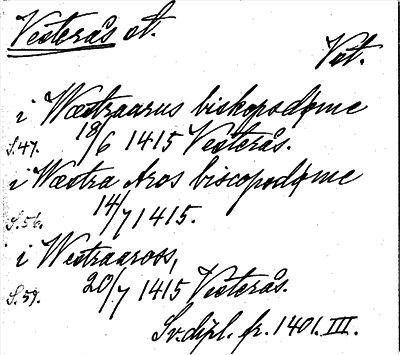 Vesterås st.
Vst.
i Wæstraarus biskopsdøme
S.47. 18/6 1415 Vesterås.
i Wæstra Aros biscopsdøme
S.56. 14/7 1415.
i Westraaross,
S.59. 20/7 1415 Vesterås.
Sv. dipl. fr. 1401. III.